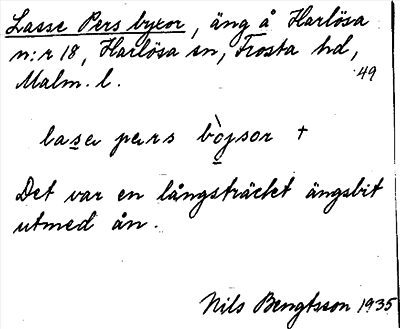 Lasse Pers byxor, äng å Harlösa
n:r 18, Harlösa sn, Frosta hd,
Malm. l. 49
lasa pers bòjsor +
Det var en långsträckt ängsbit
utmed ån.
Nils Bengtsson 1935